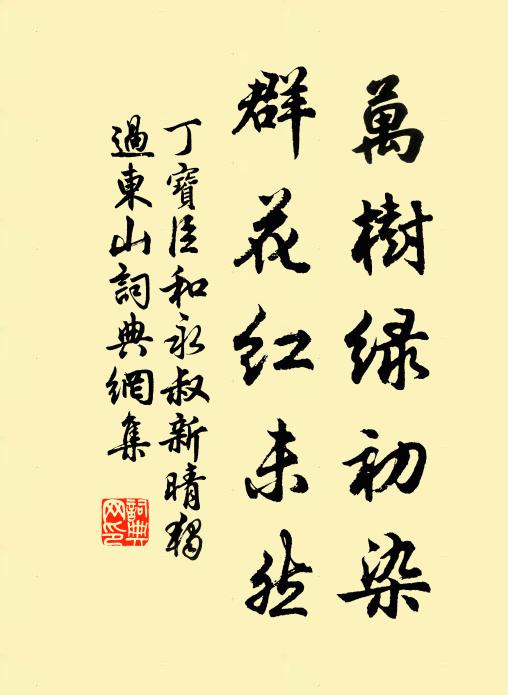 萬樹綠初染
群花紅未然
丁寶臣和永叔新晴獨
過東山詞典網集
詞典
网印